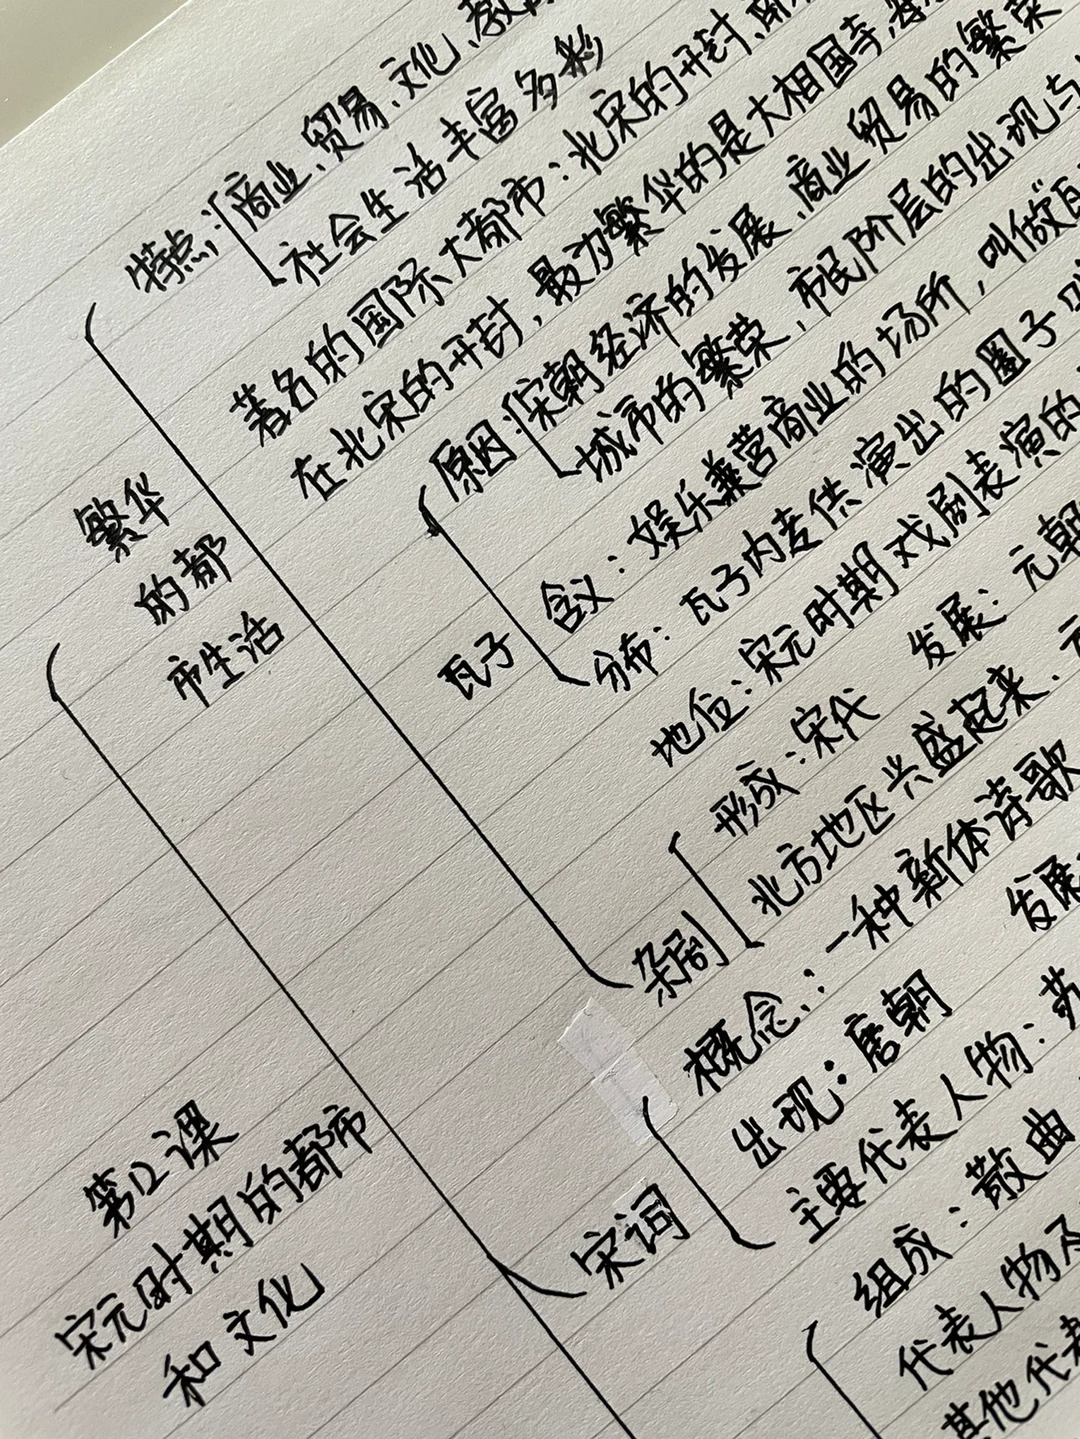 特点：商业、贸易、文化、教
社会生活丰富多彩
著名的国际大都市：北宋的开封、
在北宋的开封，最为繁华的是大相国寺，
原因：宋朝经济的发展、商业贸易的繁荣
城市的繁荣、市民阶层的出现与
含义：娱乐兼营商业的场所，叫做“
分布：瓦子内专供演出的圈子叫
地位：宋元时期戏剧表演的
繁华
的都
市生活
瓦子
形成：宋代 发展：元朝
北方地区兴盛起来、元
杂剧
概念：一种新体诗歌
出现：唐朝 发展
主要代表人物：苏
宋词
组成：散曲
代表人物及
其他代表
第12课
宋元时期的都市
和文化